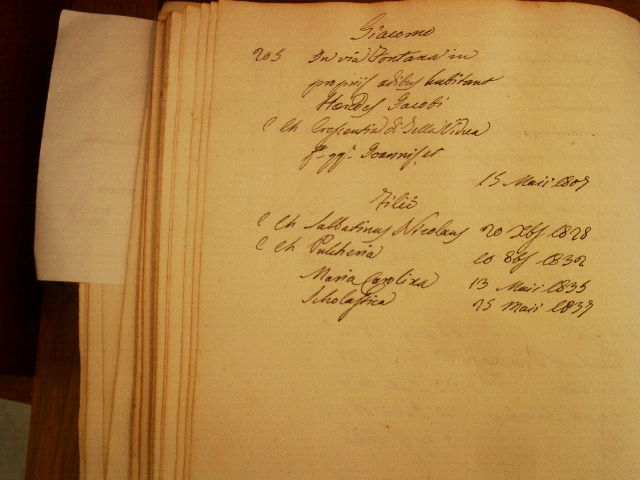 Giacomo
203 In via Fontana in
propriis ædibus habitant
Hæredes Jacobi
C Ch Crescentia di Della Vidua
Joannis et
15 Maii 1807
Filii
C Ch Sabbatinus Nicolaus 20 Xbʃ 1828
C Ch Pulcheria 20 8bʃ 1832
Maria Carolixa 13 Maii 1835
Scholastica 25 Maii 1837